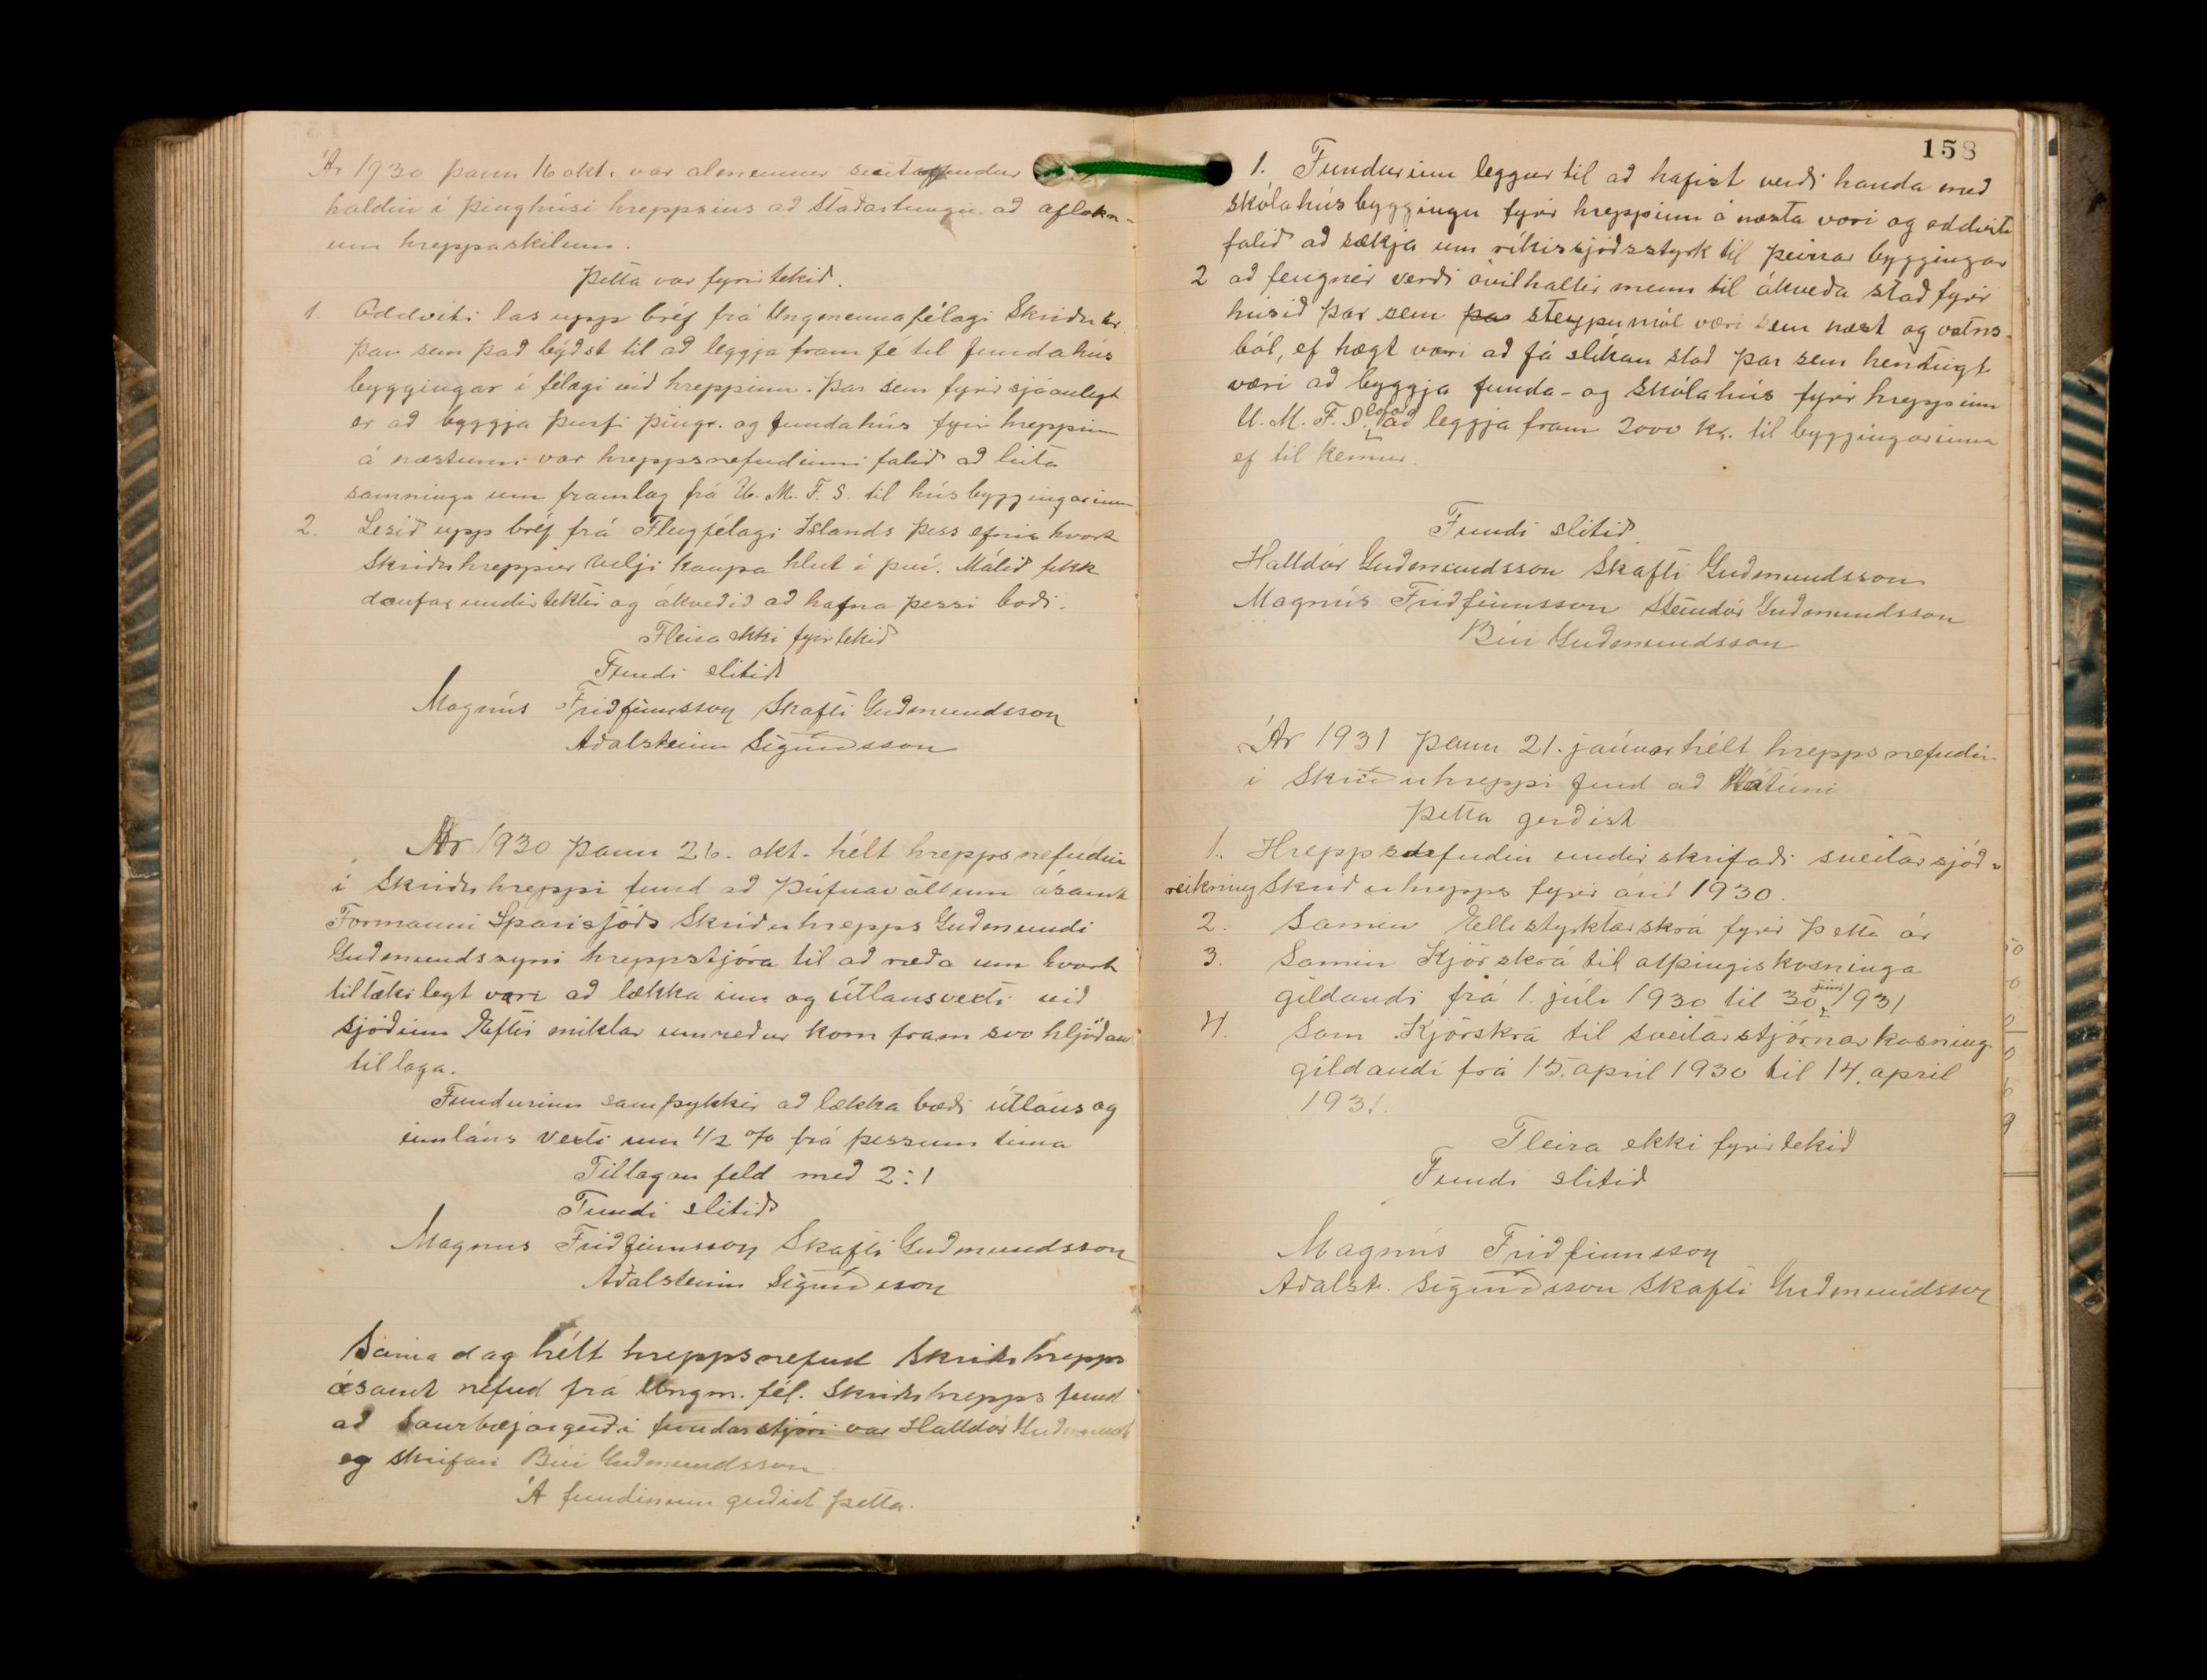 Ár 1930 þann 16 okt. var almennur sveitarfundur
haldin i þinghúsi hreppsins að Staðartungu að aflokn-
um hreppaskilum.
Þetta var fyrirtekið.
1. Oddviti las upp bréf frá Ungmennafélagi Skriðuhr.
þar sem það býðst til að leggja fram fé til fundahús
byggingar i félagi við hreppinn. Þar sem fyrirsjáanlegt
er að byggja þurfi þingr. og fundahús fyrir hreppinn
á næstunni var hreppsnefndinni falið að leita
samninga um framlag frá U. M. F. S. til húsbyggingarinnar
2. Lesið upp bréf frá Flugfélagi Íslands þess efnis hvort
Skriðuhreppur vilji kaupa hlut i því. Málið fekk
daufar undirtektir og ákveðið að hafna þessi boði.
Fleira ekki fyrirtekið
Fundi slitið
Magnús Friðfinnsson Skafti Guðmundsson
Aðalsteinn Sigurðsson
Ár 1930 þann 26. okt. hélt hreppsnefndin
i Skriðuhreppi fund að Þúfnavöllum ásamt
Formanni Sparisjóðs Skriðuhrepps Guðmundi
Guðmundssyni hreppstjóra til að ræða um hvort
tiltækilegt væri að lækka inn og útlansvexti við
sjóðinn Eftir miklar umræður kom fram svo hljóðan
tillaga.
Fundurinn samþykkir að lækka bæði útláns og
innláns vexti um 1/2 % frá þessum tima
Tillagan feld með 2:1
Fundi slitið
Magnus Friðfinnsson Skafti Guðmundsson
Aðalsteinn Sigurðsson
Sama dag hélt hreppsnefnd Skriðuhrepps
ásamt nefnd frá Ungm. fél. Skriðuhrepps fund
að Saurbæjargerði fundarstjóri var Halldór Guðmunds
og skrifari Búi Guðmundsson
Á fundinum gerðist þetta.
158
1. Fundurinn leggur til að hafist verði handa með
skólahúsbyggingu fyrir hreppinn á næsta vori og oddvita
falið að sækja um ríkissjóðsstyrk til þeirrar byggingar
2 að fengnir verði óvilhallir menn til ákveða stað fyrir
húsið þar sem þa steypumöl væri sem næst og vatns-
ból, ef hægt væri að fá slíkan stað þar sem hentugt
væri að byggja funda- og skólahús fyrir hreppinn
U. M. F. S. lofað að leggja fram 2000 kr. til byggingarinnar
ef til kemur.
Fundi slitið.
Halldór Guðmundsson Skafti Guðmundsson
Magnús Friðfinnsson Steindór Guðmundsson
Búi Guðmundsson
Ár 1931 þann 21. janúar hélt hreppsnefndin
i Skriðuhreppi fund að Hátúni
Þetta gerðist
1. Hreppsnefndin undirskrifaði sveitarsjóð-
reikning Skriðuhrepps fyrir árið 1930.
2. Samin Ellistyrktarskrá fyrir þetta ár
3. Samin Kjörskrá til alþingiskosninga
gildandi frá 1. júli 1930 til 30. júni 1931
4. Sam. Kjörskrá til sveitarstjórnarkosning
gildandi frá 15. april 1930 til 14. april
1931.
Fleira ekki fyrirtekið
Fundi slitið
Magnús Friðfinnsson
Aðalst. Sigurðsson Skafti Guðmundsson